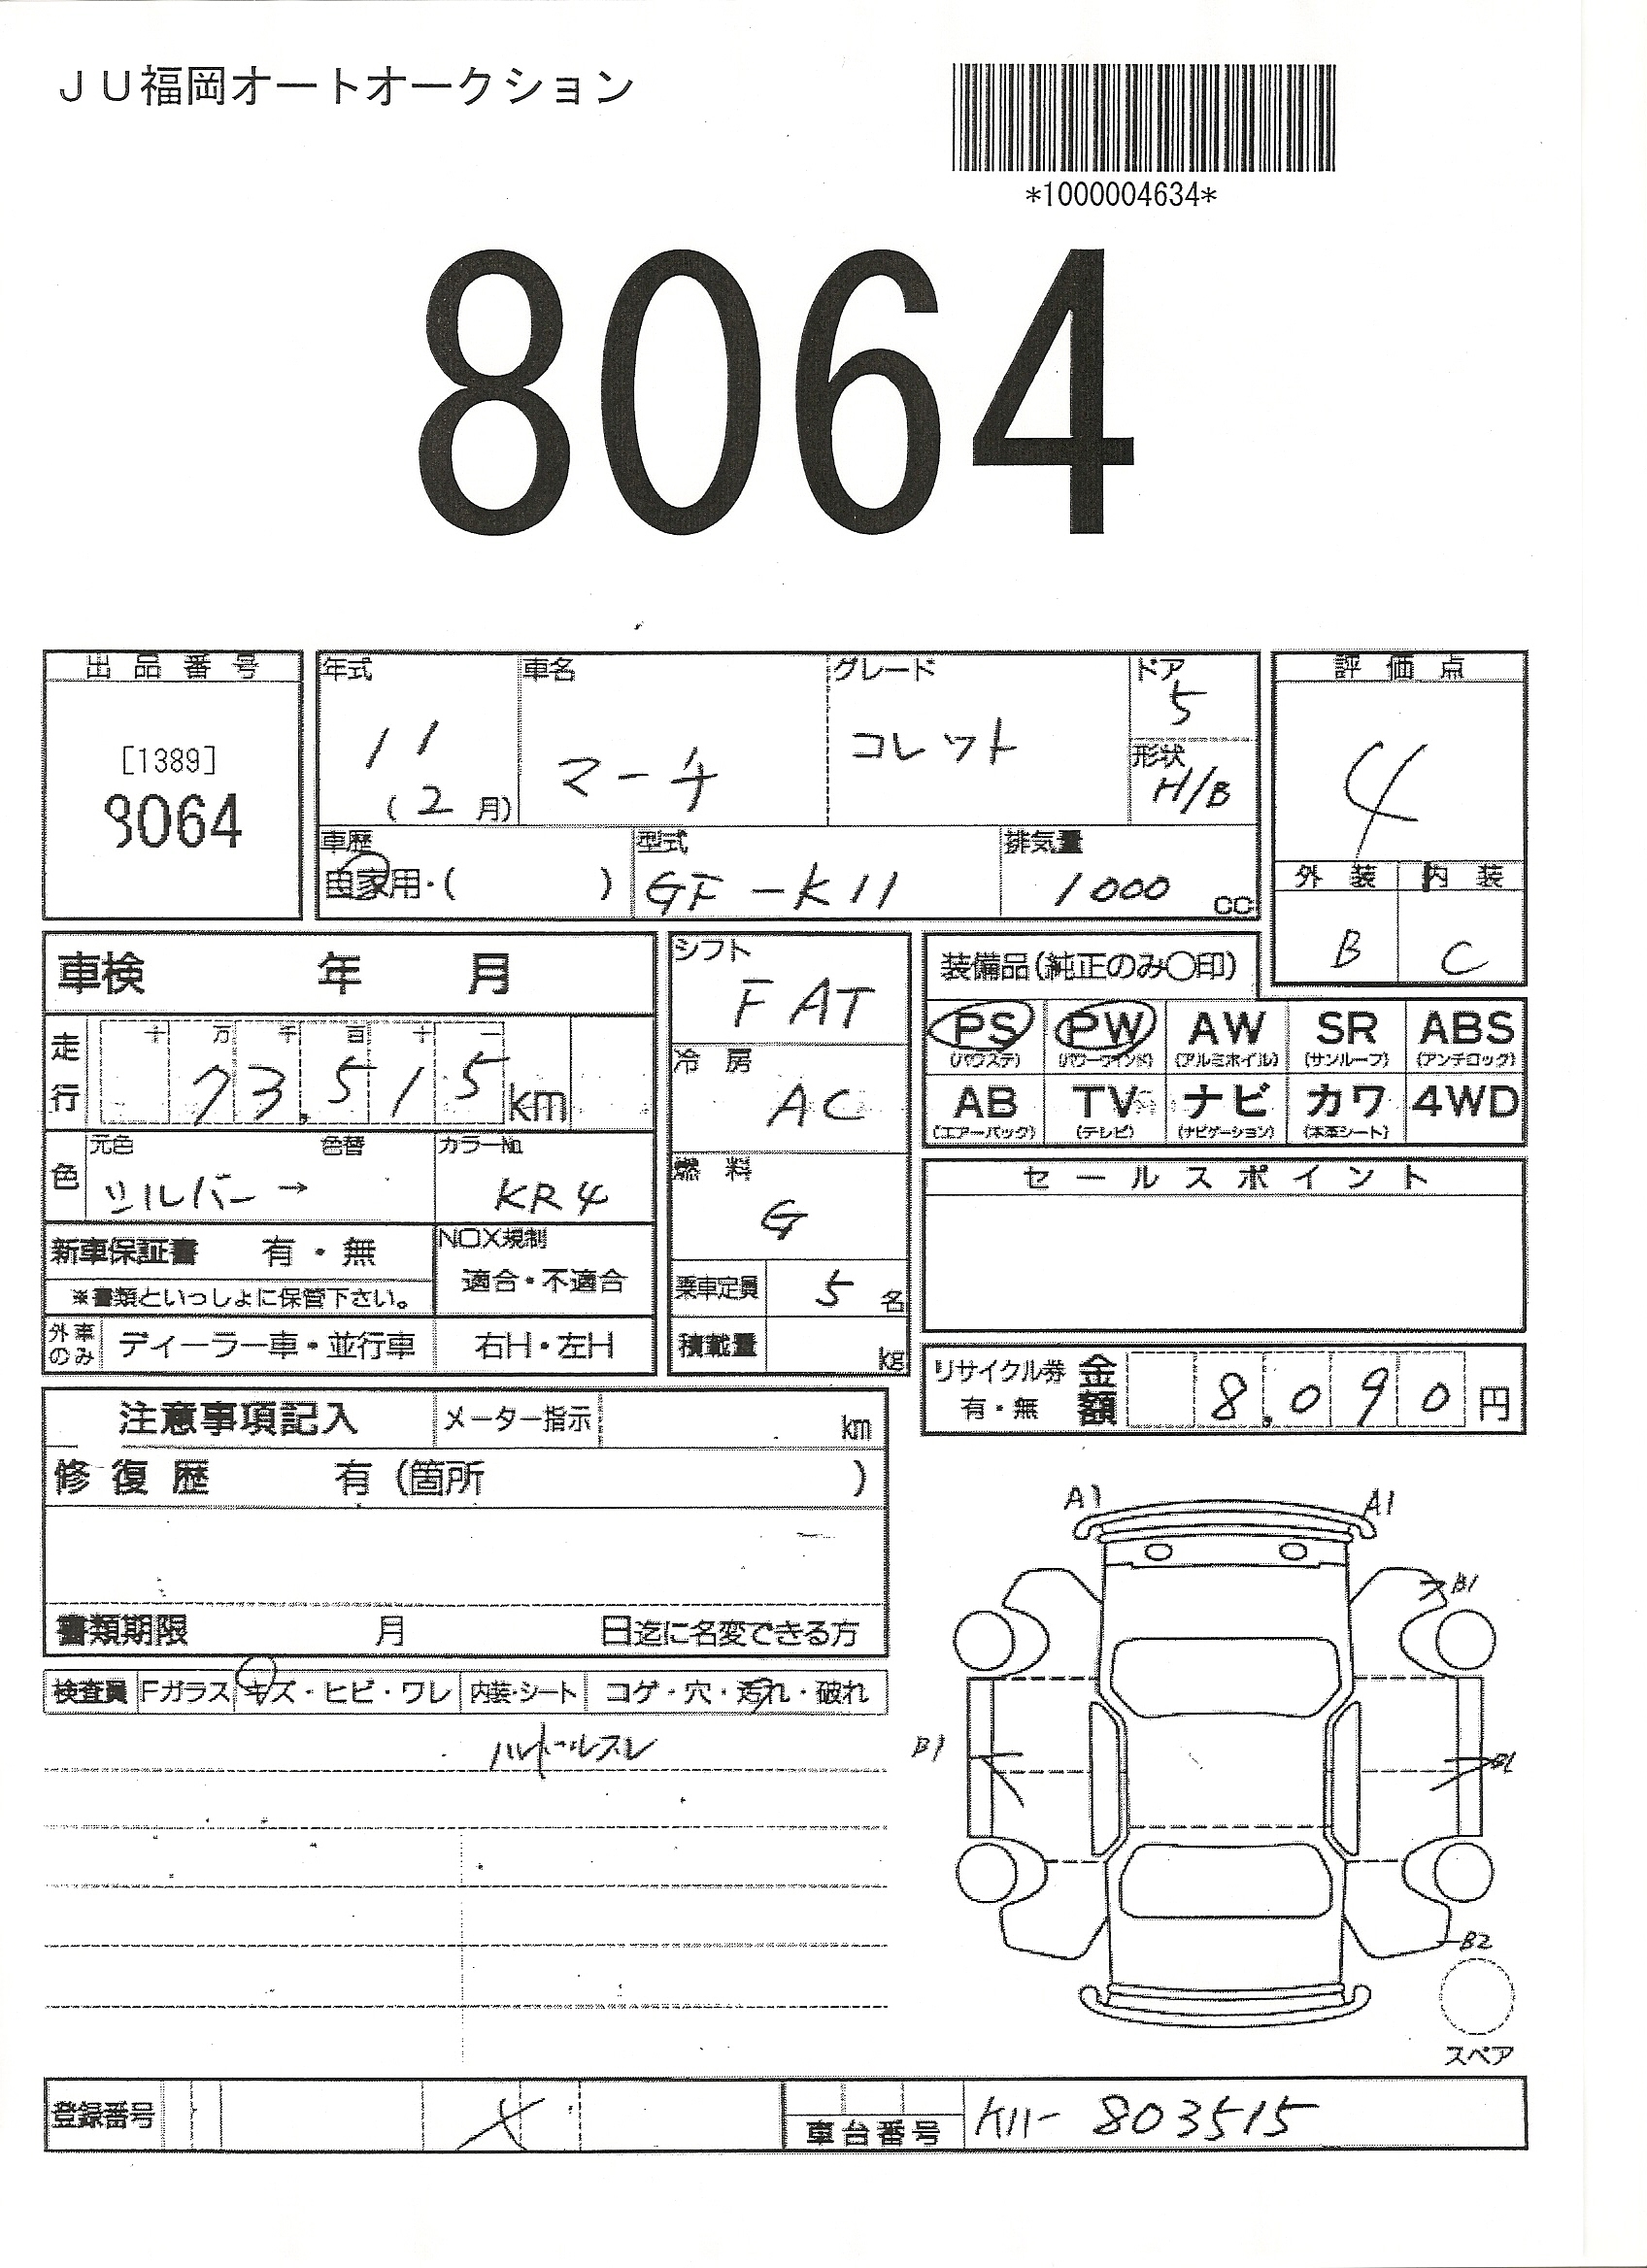 ＪＵ福岡オートオークション
*1000004634*
8064
出品番号
[1389]
8064
年式
11
(2月)
車名
マーチ
グレード
コレット
ドア
5
形状
H/B
評価点
4
車歴
自家用・( )
型式
GF-K11
排気量
1000 CC
外装 内装
B C
車検 年 月
走行
十 万 千 百 十 一
73,515 km
色
元色 色替
シルバー →
カラーNo.
KR4
新車保証書 有・無
※書類といっしょに保管下さい。
NOX規制
適合・不適合
外車のみ ディーラー車・並行車 右H・左H
シフト
FAT
冷房
AC
燃料
G
乗車定員 5 名
積載量 kg
装備品(純正のみ〇印)
PS PW AW SR ABS
(パワステ) (パワーウインド) (アルミホイル) (サンルーフ) (アンチロック)
AB TV ナビ カワ 4WD
(エアーバック) (テレビ) (ナビゲーション) (本革シート)
セールスポイント
リサイクル券 有・無 金額 8,090 円
注意事項記入 メーター指示 km
修復歴 有 (箇所 )
書類期限 月 日迄に名変できる方
検査員 Fガラス キズ・ヒビ・ワレ 内装・シート コゲ・穴・汚れ・破れ
スレ
A1 A1
B1
B1 B1
B2
スペア
登録番号
車台番号 K11-803515